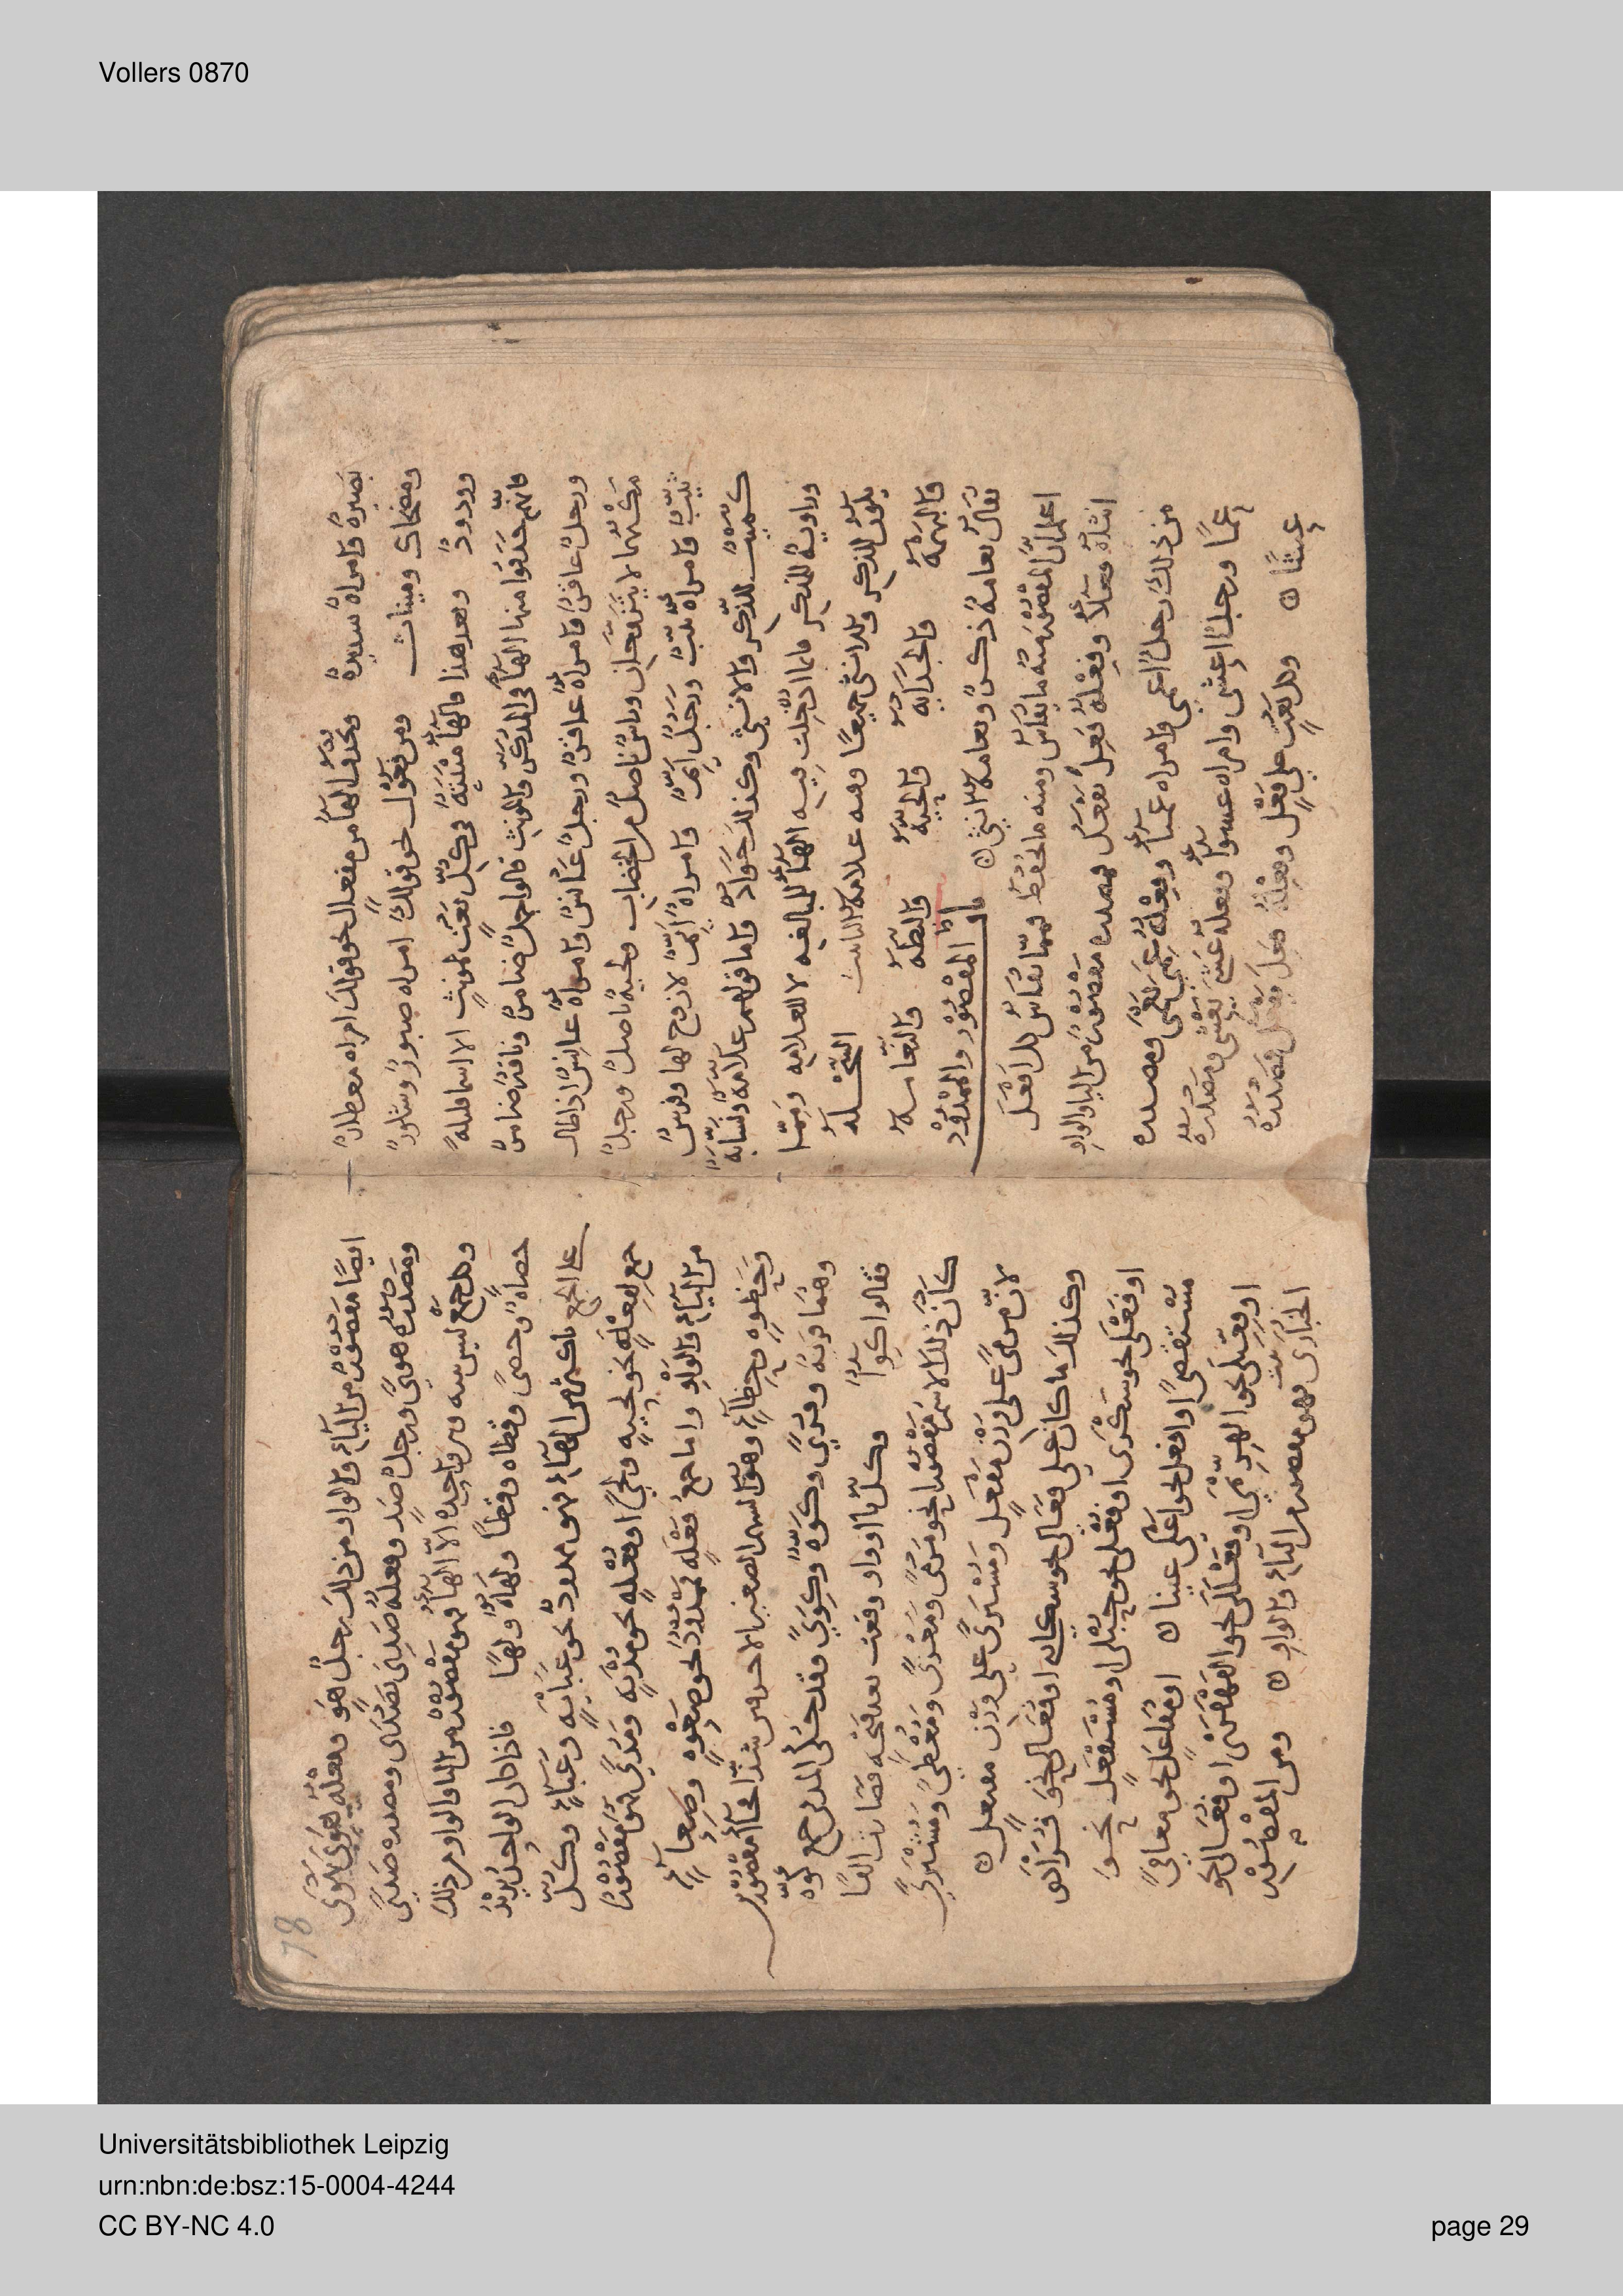 Vollers 0870
بصيرة وامراه سيدة وتحذف الهاء من مفعال نحو قولك امراه معطار
ومضحاك وميناث ومن فعول نحو قولك امراه صبور وشكور
وودود وبعد هذا فالهاء مثبتة في كل نعت لمونث الا اسما قليلة
فانهم حذفوا منها الهاء في المذكر والمونث قالوا جمل ضامر وناقة ضامر
ورجل عاقر وامراة عاقر ورجل عانس وامراة عانس اذا طال
مكثهما لا يتزوجان وراس ناصل من الخضاب ولحية ناصل ورجل
ثيب وامراة ثيب ورجل ايم وامراة ايم لا زوج لها وفرس
كميت للذكر والانثى وكذلك جواد واما قولهم علامة ونسابة
وراوية للمذكر فانما ادخلت فيه الهاء للمبالغه لا للعلامه ومما
يكون للذكر وللانثى جميعا وفيه علامة التانيث السخلة
والبهمة والجداية والحية والبطة والنعامة
يقال نعامة ذكر ونعامة انثى
باب المقصور والممدود
اعلم ان المقصور منه ما يقاس ومنه ما يحفظ فمما يقاس كل افعل
انثاه فعلاء وفعله فعل يفعل فمصدره مقصور من اليا والواو
من ذلك رجل اعمى وامراه عمياء وفعله عمي يعمى ومصدره
عمى ورجل اعشى وامراه عشواء وفعله عشي يعشى ومصدره
عشا وكل نعت على فعل وفعله فعل يفعل فمصدره
78
ايضا مقصور من الياء والواو من ذلك رجل هو وفعله هوي يهوى
ومصدره هوى ورجل صد وفعله صدي يصدى ومصدره صدى
وكل جمع ليس بينه وبين واحده الا الهاء فهو مقصور من اليا والواو من ذلك
حصاة وحصى وقطاه وقطا ولهاة ولها فاذا كان الواحد يزيد
على الجمع باكثر من الهاء فهو ممدود نحو عباية وعباء وكل
جمع لفعلة نحو لحية ولحى او فعلة نحو مدية ومدى فهو مقصور
من الياء والواو واما جمع فعلة فممدود نحو صعوة وصعاء
وهما قرية وقرى وكوة وكوى وقد حكي المد في جمع كوة
فقالوا كواء وكل يا او واو وقعت بعد فتحه فصارت الفا
كان ذلك الاسم مقصورا نحو مرمى ومغزى ومعطى ومشترى
لان مرمى على وزن مفعل ومشترى على وزن مفتعل
وكذلك ما كان على فعالى نحو سكارى او فعالى نحو
او فعلى نحو سكرى او فعلى نحو حبلى او مستفعل نحو
مستقصى او افعل نحو اعمى او مفاعل نحو معافى
او فعلى نحو او فعللى نحو القهقرى او فعالى نحو
الحبارى فهو مقصور من الياء والواو ومن المقصور
Universitätsbibliothek Leipzig
urn:nbn:de:bsz:15-0004-4244
CC BY-NC 4.0
page 29